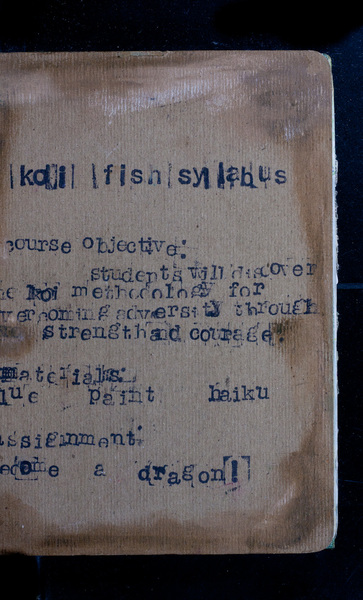 koi fish syllabus
course objective:
students will discover
he koi methodology for
vercoming adversity through
strength and courage.
materials:
lue paint haiku
assignment:
ecome a dragon!